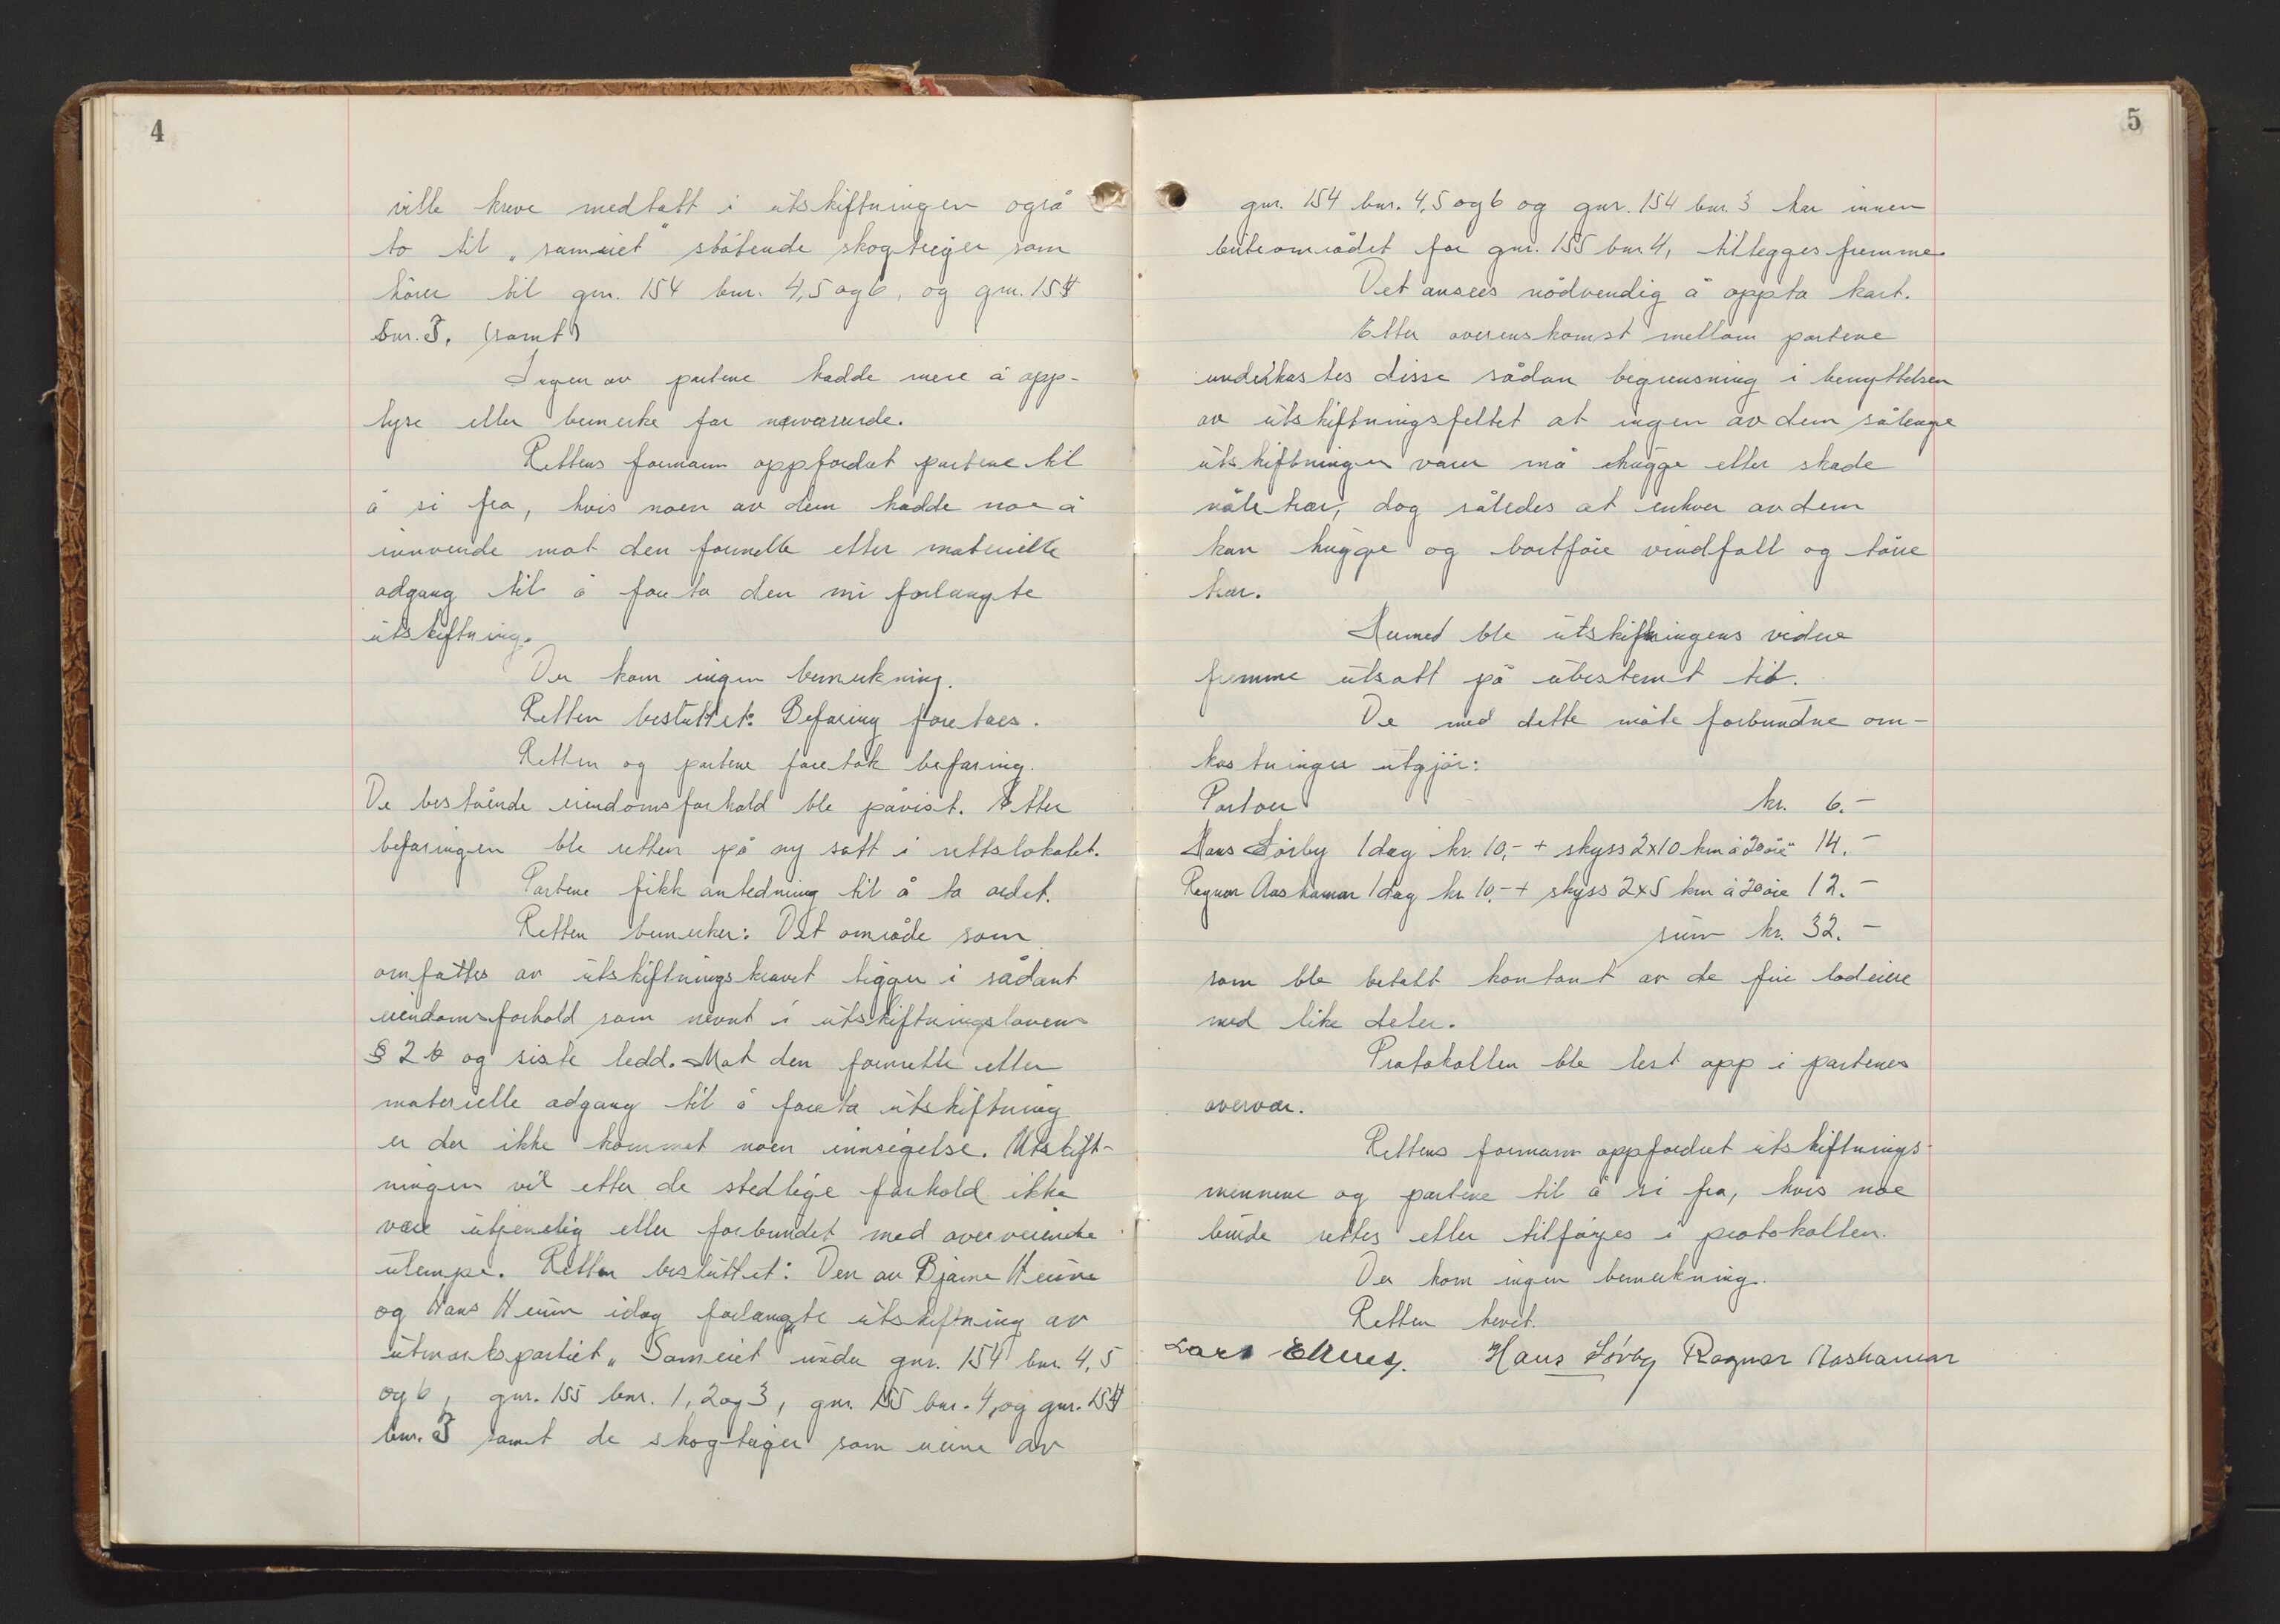 4
ville kreve medtatt i utskiftningen også
to til „sameiet" støtende skogteiger som
hører til gnr. 154 bnr. 4,5 og 6, og gnr. 154
bnr. 3. (samt)
Ingen av partene hadde mere å opp-
lyse eller bemerke for nærværende.
Rettens formann oppfordret partene til
å si fra, hvis noen av dem hadde noe å
innvende mot den formelle eller materielle
adgang til å foreta den nu forlangte
utskiftning.
Der kom ingen bemerkning.
Retten besluttet: Befaring foretaes.
Retten og partene foretok befaring.
De bestående eiendomsforhold ble påvist. Etter
befaringen ble retten på ny satt i rettslokalet.
Partene fikk anledning til å ta ordet.
Retten bemerker: Det område som
omfattes av utskiftningskravet ligger i sådant
eiendomsforhold som nevnt i utskiftningslovens
§ 2 b og siste ledd. Mot den formelle eller
materielle adgang til å foreta utskiftning
er der ikke kommet noen innsigelse. Utskift-
ningen vil etter de stedlige forhold ikke
være utjenelig eller forbundet med overveiende
ulempe. Retten besluttet: Den av Bjarne Heum
og Hans Heum idag forlangte utskiftning av
utmarkspartiet „Sameiet" under gnr. 154 bnr. 4,5
og 6, gnr. 155 bnr. 1, 2 og 3, gnr. 155 bnr. 4, og gnr. 154
bnr. 3 samt de skogteiger som eierne av
5
gnr. 154 bnr. 4,5 og 6 og gnr. 154 bnr. 3 har innen
beiteområdet for gnr. 155 bnr. 4, tillegges fremme.
Det ansees nödvendig å oppta kart.
Etter overenskomst mellom partene
underkastes disse sådan begrensning i benyttelsen
av utskiftningsfeltet at ingen av dem sålenge
utskiftningen varer må hugge eller skade
nåletrær, dog således at enhver av dem
kan hugge og bortføre vindfall og tørre
trær.
Hermed ble utskiftningens videre
fremme utsatt på ubestemt tid.
De med dette møte forbundne om-
kostninger utgjør:
Portoer kr. 6.-
Hans Sørby 1 dag kr. 10,- + skyss 2x10 km à 20 øre 14.-
Ragnar Aashamar 1 dag kr. 10.- + skyss 2x5 km à 20 øre 12.-
sum kr. 32.-
som ble betalt kontant av de fire lodeiere
med like deler.
Protokollen ble lest opp i partenes
overvær.
Rettens formann oppfordret utskiftnings-
mennene og partene til å si fra, hvis noe
burde rettes eller tilføyes i protokollen.
Der kom ingen bemerkning.
Retten hevet.
Lars Hans Sørby Ragnar Aashamar